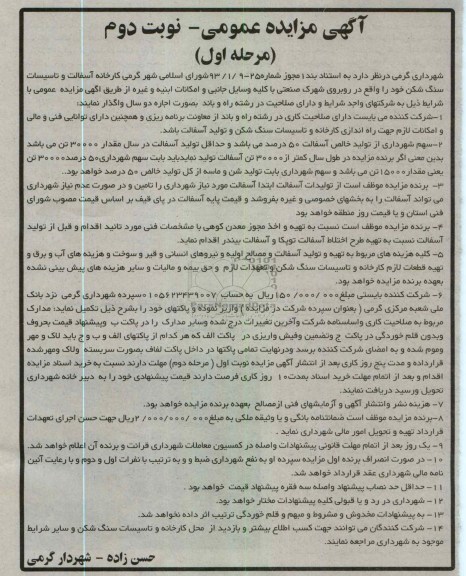 آگهی مزایده عمومی- نوبت دوم
(مرحله اول)
شهرداری گرمی درنظر دارد به استناد بند۱مجوز شماره۲۵-۹/۱/ ۹۳شورای اسلامی شهر گرمی کارخانه آسفالت و تاسیسات
سنگ شکن خود را واقع در روبروی شهرک صنعتی با کلیه وسایل جانبی و امکانات ابنیه و غیره از طریق اگهی مزایده عمومی با
شرایط ذیل به شرکتهای واجد شرایط و دارای صلاحیت در رشته راه و باند بصورت اجاره دو سال واگذار نمایند؛
۱-شرکت کننده می بایست دارای صلاحیت کاری در رشته راه و باند از معاونت برنامه ریزی و همچنین دارای توانایی فنی و مالی
و امکانات لازم جهت راه اندازی کارخانه و تاسیسات سنگ شکن و تولید آسفالت باشد.
۲-سهم شهرداری از تولید خالص آسفالت ۵۰ درصد می باشد و حداقل تولید آسفالت در سال مقدار ۳۰۰۰۰ تن می باشد
بدین معنی اگر برنده مزایده در طول سال کمتر از۳۰۰۰۰ تن آسفالت تولید نمایدباید بابت سهم شهرداری۵۰ درصد۳۰۰۰۰ تن
یعنی مقدار۱۵۰۰۰ تن می باشد و سهم شهرداری بابت تولید شن و ماسه از کل تولید خالص ۵۰ درصد خواهد بود.
۳- برنده مزایده موظف است از تولیدات آسفالت ابتدا آسفالت مورد نیاز شهرداری را تامین و در صورت عدم نیاز شهرداری
می تواند آسفالت را به بخشهای خصوصی و غیره بفروشد و قیمت پایه آسفالت در پای قیف بر اساس قیمت مصوب شورای
فنی استان و یا قیمت روز منطقه خواهد بود
۴- برنده مزایده موظف است نسبت به تهیه و اخذ مجوز معدن کوهی با مشخصات فنی مورد تائید اقدام و قبل از تولید
آسفالت نسبت به تهیه طرح اختلاط آسفالت توپکا و آسفالت بیندر اقدام نماید.
۵- کلیه هزینه های مربوط به تهیه و تولید آسفالت و مصالح اولیه و نیروهای انسانی و قیر و سوخت و هزینه های آب و برق و
تهیه قطعات لازم کارخانه و تاسیسات سنگ شکن و تعهدات لازم و حق بیمه و مالیات و سایر هزینه های پیش بینی نشده
بعهده برنده مزایده خواهد بود.
۶- شرکت کننده بایستی مبلغ۱۵۰/۰۰۰/۰۰۰ریال به حساب ۰۱۰۵۶۲۳۴۳۹۰۰۷سپرده شهرداری گرمی نزد بانک
ملی شعبه مرکزی گرمی ( بعنوان سپرده شرکت در مزایده ) واریز نموده و پاکتهای خود را بشرح ذیل تکمیل نماید: مدارک
مربوط به صلاحیت کاری واساسنامه شرکت وآخرین تغییرات درج شده وسایر مدارک را در پاکت ب وپیشنهاد قیمت بحروف
وبدون قلم خوردگی در پاکت ج وتضمین وفیش واریزی در پاکت الف که هر کدام از پاکتهای الف و ب و ج باید لاک و مهر
وموم شده و به امضای شرکت کننده برسد ودرنهایت تمامی پاکتها در داخل پاکت لفاف بصورت سربسته ولاک ومهرشده
قرارداده و مدت پنج روز کاری بعد از انتشار آگهی مزایده نوبت اول ( مرحله دوم) مهلت دارند نسبت به خرید اسناد مزایده
اقدام و بعد از اتمام مهلت خرید اسناد بمدت۱۰ روز کاری فرصت دارند قیمت پیشنهادی خود را به دبیر خانه شهرداری
تحویل ورسید دریافت نمایند.
۷- هزینه نشر وانتشار آگهی و آزمایشهای فنی ازمصالح بعهده برنده مزایده خواهد بود.
۸-برنده مزایده موظف است ضمانتنامه بانگی و یا وثیقه ملکی به مبلغ۲/۰۰۰/۰۰۰/۰۰۰ریال جهت حسن اجرای تعهدات
قرارداد تهیه و تحویل امور مالی شهرداری نماید .
۹- یک روز بعد از اتمام مهلت قانونی پیشنهادات واصله در کمسیون معاملات شهرداری قرائت و برنده آن اعلام خواهد شد.
۱۰- در صورت انصراف برنده اول مزایده سپرده او به نفع شهرداری ضبط و و به ترتیب با نفرات اول و دوم و با رعایت آئین
نامه مالی شهرداری عقد قرارداد خواهد شد.
۱۱- حداقل حد نصاب پیشنهاد واصله سه فقره پیشنهاد قیمت خواهد بود .
۱۲- شهرداری در رد و یا قبولی کلیه پیشنهادات مختار خواهد بود.
۱۳- به پیشنهادات مخدوش و مشروط و مبهم و قلم خوردگی ترتیب اثر داده نخواهد شد.
۱۴- شرکت کنندگان می توانند جهت کسب اطلاع بیشتر و بازدید از محل کارخانه و تاسیسات سنگ شکن و سایر شرایط
موجود به شهرداری مراجعه نمایند.
حسن زاده - شهردار گرمی